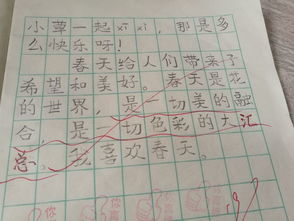 小草一起xī xì，那是多
么快乐呀！
春天给人们带来了
希望和美好。春天是花
的世界，是一切美的融
合，是一切色彩的大汇
总。我喜欢春天。